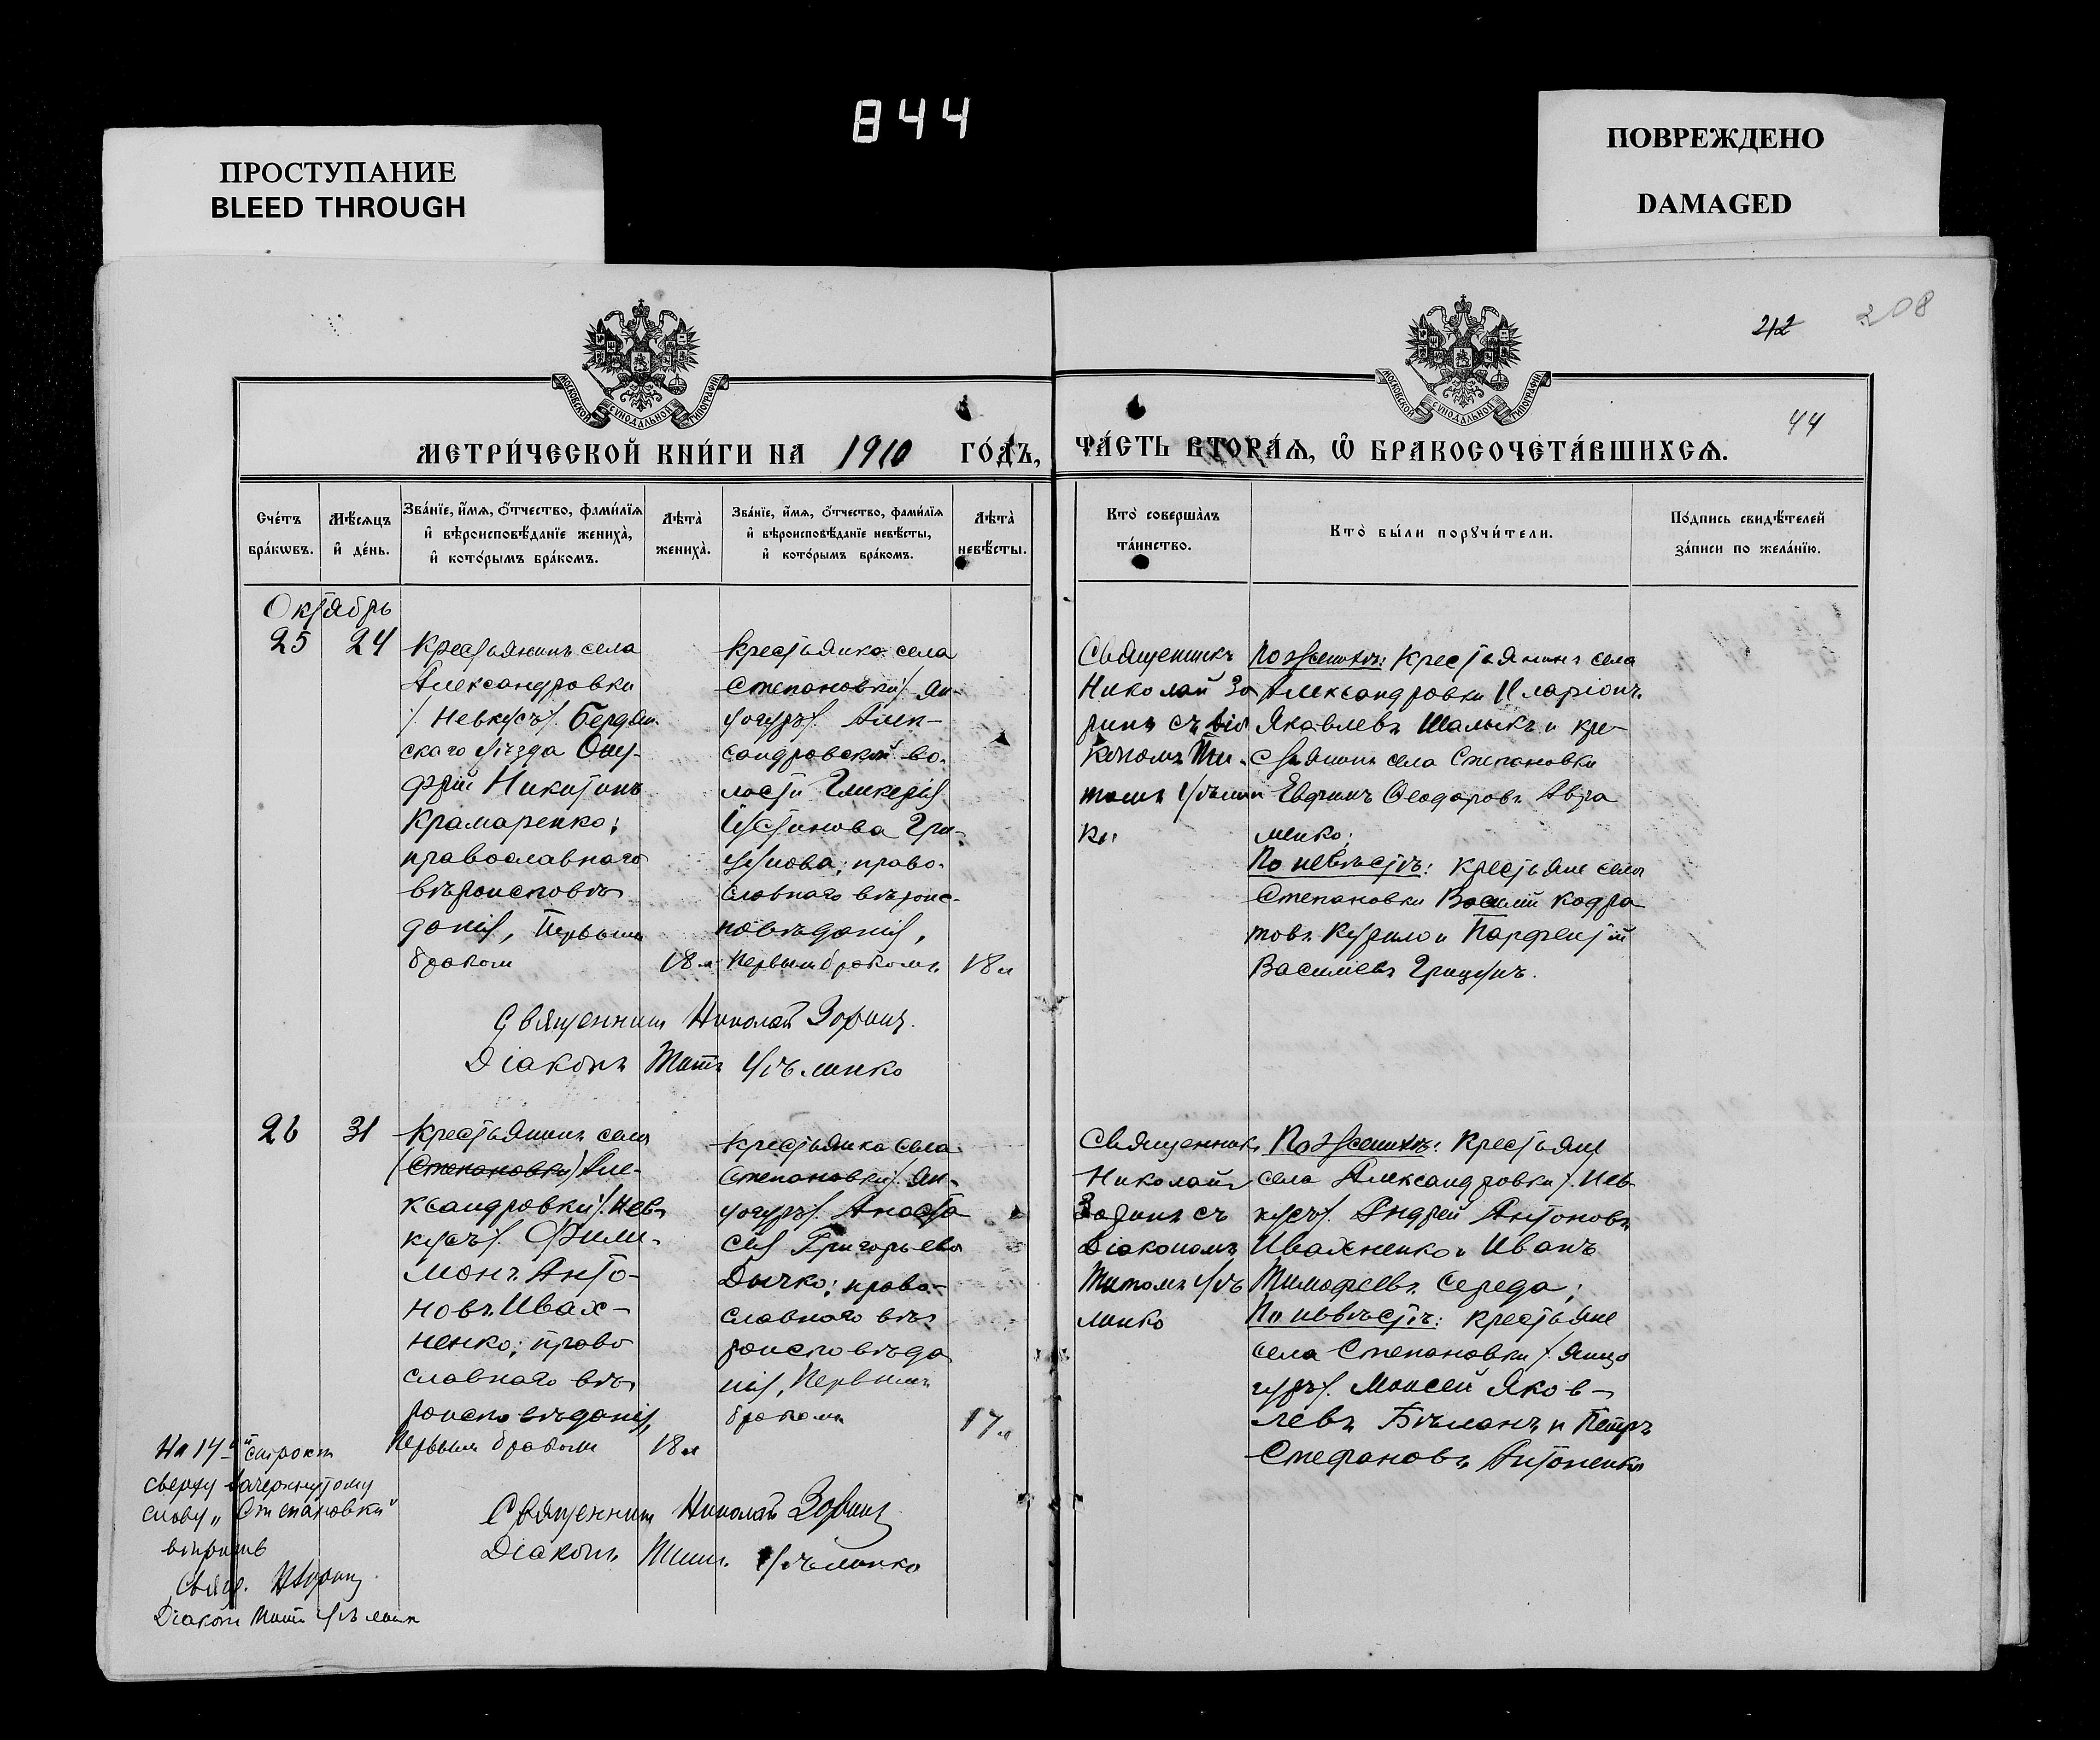 844
ПРОСТУПАНИЕ
BLEED THROUGH
ПОВРЕЖДЕНО
DAMAGED
212
208
44
МОСКОВСКОЙ СУНОДАЛЬНОЙ ТИПОГРАФІИ
МОСКОВСКОЙ СУНОДАЛЬНОЙ ТИПОГРАФІИ
МЕТРИ́ЧЕСКОЙ КНИ́ГИ НА 1910 ГО́ДЪ,
ЧА́СТЬ ВТОРА́Ѧ, Ѽ БРАКОСОЧЕТА́ВШИХСѦ.
Сче́тъ бра́кѡвъ.
Мѣ́сѧцъ и҆ де́нь.
Зва́нїе, и҆́мѧ, ѻ҆́тчество, фами́лїѧ и҆ вѣроисповѣ́данїе жениха̀, и҆ кото́рымъ бра́комъ.
Лѣта̀ жениха̀.
Зва́нїе, и҆́мѧ, ѻ҆́тчество, фами́лїѧ и҆ вѣроисповѣ́данїе невѣ́сты, и҆ кото́рымъ бра́комъ.
Лѣта̀ невѣ́сты.
Кто̀ соверша́лъ та́инство.
Кто̀ бы́ли порꙋчи́тели.
По́дпись свидѣ́телей за́писи по жела́нїю.
Октябрь
25
24
Крестьянинъ села
Александровки
/. Невкусъ/. Бердян-
скаго уѣзда Ону-
фрій Никитинъ
Крамаренко;
православнаго
вѣроисповѣ-
данія, Первымъ
бракомъ
18 л
Крестьянка села
Степановки /. Ян-
чогуръ/. Алек-
сандровской во-
лости Гликерія
Іустинова Гри-
цунова; право-
славнаго вѣроис-
повѣданія,
Первымъ бракомъ
18 л
Священникъ
Николай Зо
ринъ съ Діа
кономъ Ти-
томъ
По женихѣ: Крестьянинъ села
Александровки Иларіонъ
Яковлевъ Шалыкъ и кре-
стьянинъ села Степановки
Евфимъ Ѳеодоровъ Авра
менко;
По невѣстѣ: крестьяне села
Степановки Василій Кодра
товъ Курило и Парфентій
Василіевъ Грицунъ.
Священникъ Николай Зоринъ.
Діаконъ Титъ
26
31
Крестьянинъ села
(Степановки) Але-
ксандровки /. Нев-
кусъ/. Фили-
монъ Анто-
новъ Ивах-
ненко; право
славнаго вѣ-
роисповѣданія,
Первымъ бракомъ
18 л
Крестьянка села
Степановки /. Ян-
чогуръ/. Анаста
сія Григорьева
Дычко; право-
славнаго вѣ-
роисповѣда
нія, Первымъ
бракомъ
17 л
Священникъ
Николай
Зоринъ съ
Діакономъ
Титомъ
По женихѣ: Крестьяне
села Александровки /. Нев-
кусъ/. Андрей Антоновъ
Ивахненко и Иванъ
Тимофеевъ Середа;
По невѣстѣ: крестьяне
села Степановки /. Янчо
гуръ/. Моисей Яков-
левъ Бѣланъ и Петръ
Стефановъ Антоненко
Священникъ Николай Зоринъ
Діаконъ Титъ
На 14й строкѣ
сверху зачеркнутому
слову „Степановки"
вѣрить
Свящ. Н Зоринъ
Діаконъ Титъ